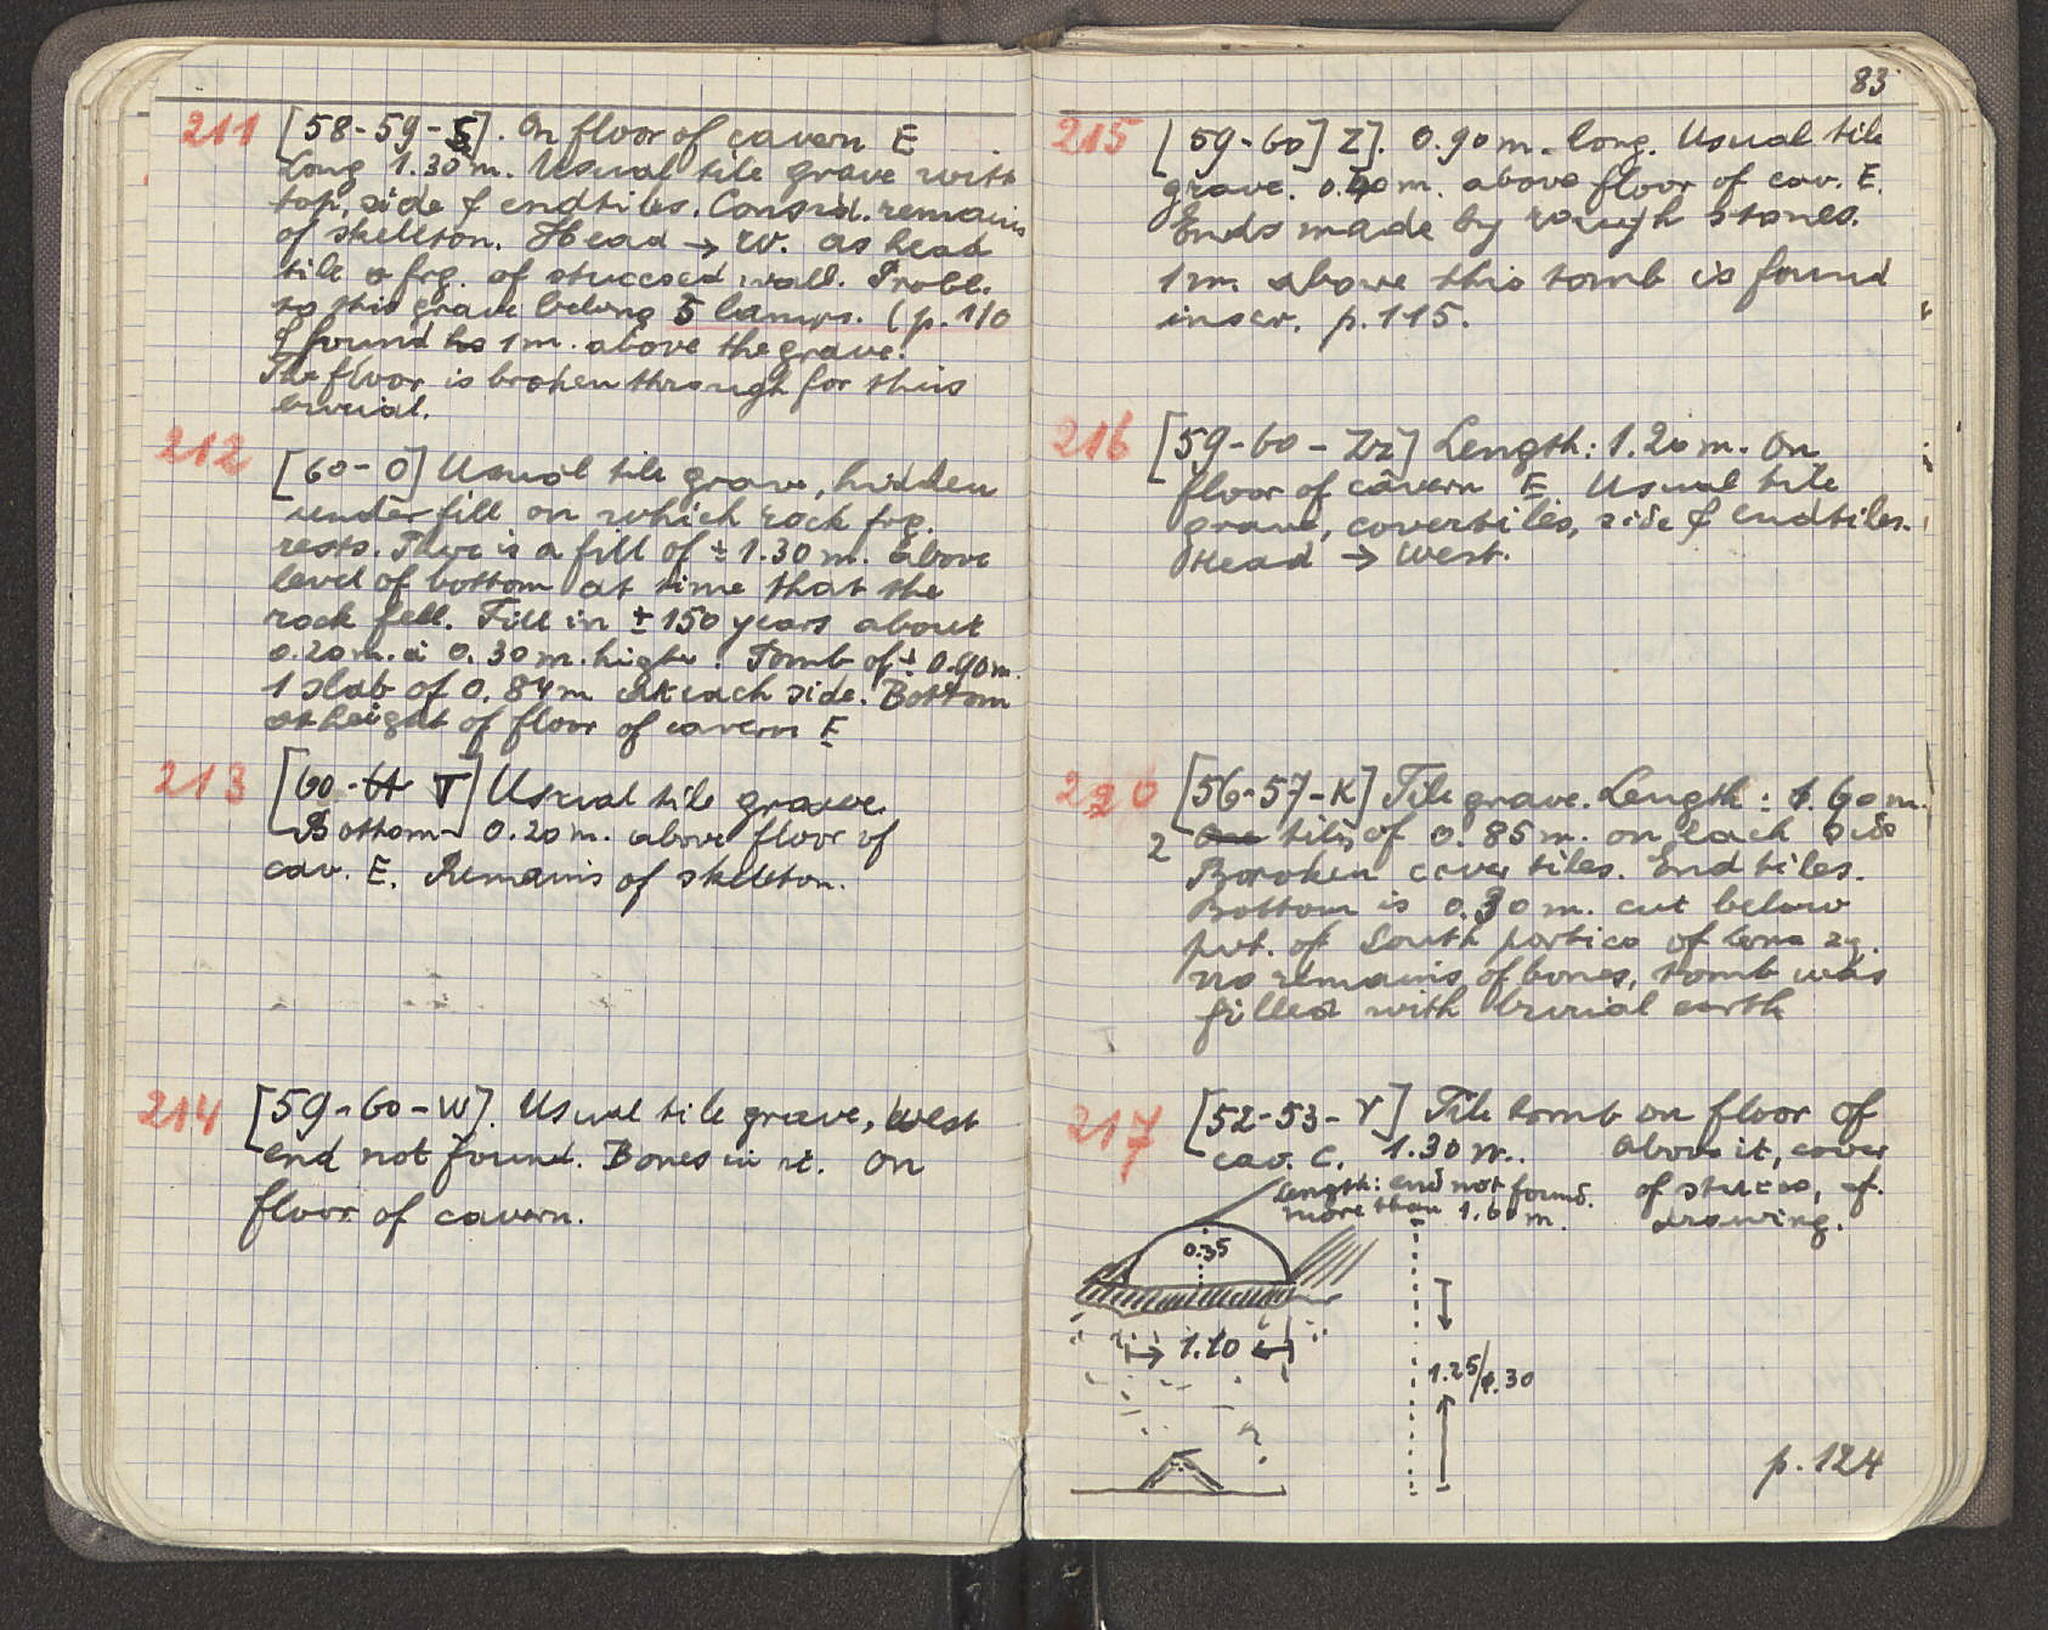 211 [58-59-S]. On floor of cavern E
Long 1.30 m. Usual tile grave with
top, side & endtiles. Consid. remains
of skeleton. Head → W. as head
tile a frg. of stuccoed wall. Probl.
to this grave belong 5 lamps. (p. 110
& found 1 m. above the grave.
The floor is broken through for this
burial.
212 [60-O] Usual tile grave, hidden
under fill on which rock frg.
rests. There is a fill of ± 1.30 m. above
level of bottom at time that the
rock fell. Fill in ± 150 years about
0.20 m. à 0.30 m. higher. Tomb of ± 0.90 m.
1 slab of 0.84 m at each side. Bottom
at height of floor of cavern E
213 [60- T] Usual tile grave.
Bottom 0.20 m. above floor of
cav. E. Remains of skeleton.
214 [59-60-W]. Usual tile grave, West
end not found. Bones in it. On
floor of cavern.
83
215 [59-60] Z]. 0.90 m. long. Usual tile
grave. 0.40 m. above floor of cav. E.
Ends made by rough stones.
1 m. above this tomb is found
inscr. p. 115.
216 [59-60- ] Length: 1.20 m. On
floor of cavern E Usual tile
grave, covertiles, side & endtiles.
Head → West.
220 [56-57-K] Tile grave. Length: 1.60 m.
2 tiles of 0.85 m. on each side
Boroken cover tiles. End tiles.
Bottom is 0.30 m. cut below
pvt. of South portico of
no remains of bones, tomb was
filled with burial earth
217 [52-53-Y] Tile tomb on floor of
cav. C. 1.30 m. Above it, cover
Length: end not found. of stucco, cf.
more than 1.60 m. drawing.
0.35
→ 1.10 ←
1.25/1.30
p. 124